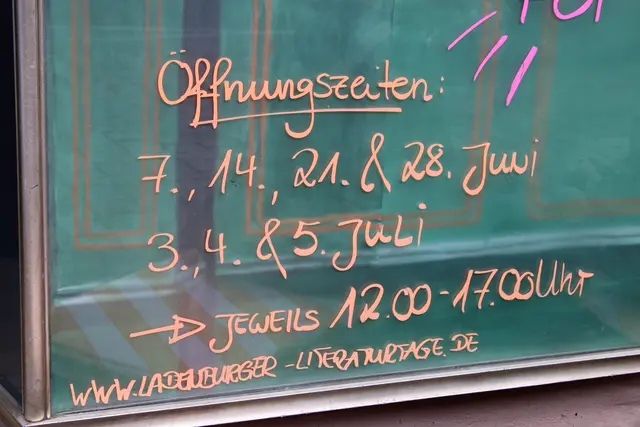 Öffnungszeiten:
7., 14., 21. & 28. Juni
3., 4. & 5. Juli
→ JEWEILS 12.00-17.00 Uhr
WWW.LADENBURGER-LITERATURTAGE.DE